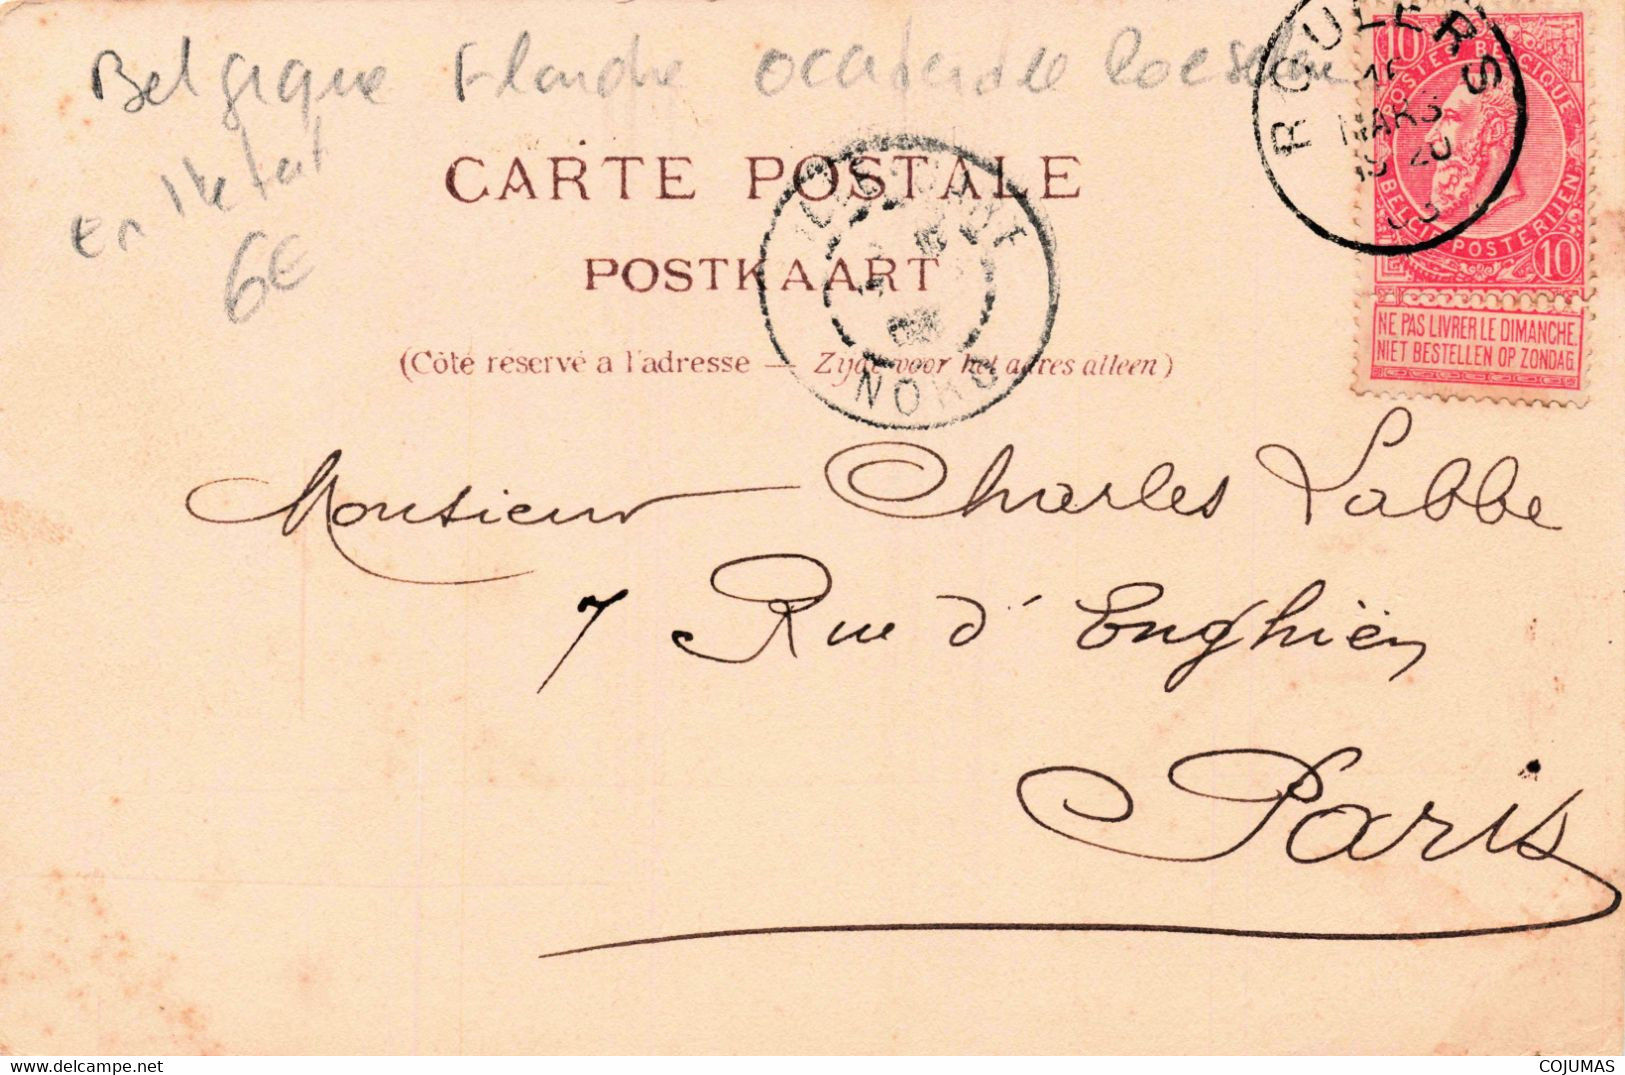 Belgique Flandre Occidentale Roeselare
en l'etat
6€
CARTE POSTALE
POSTKAART
(Côté réservé a l'adresse — Zijde voor het adres alleen)
NORD
ROULERS
MARS
10 10
POSTES BELGIQUE
BELGIE POSTERIJEN
10
NE PAS LIVRER LE DIMANCHE
NIET BESTELLEN OP ZONDAG
Monsieur Charles Labbe
7 Rue d'Enghien
Paris
COJUMAS